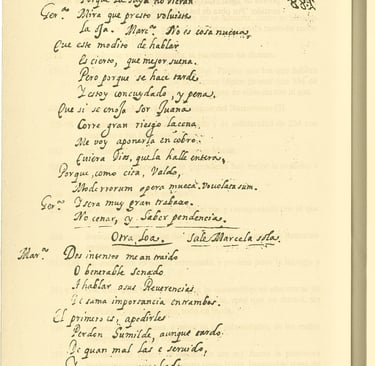 Porque la suya no vieran
Ger.ᵐᵃ Mira que presto volviste
la oja. Marc.ᵃ No es cosa nueva,
Que este modito de hablar
Es cierto, que mejor suena.
Pero porque se hace tarde
Y estoy con cuydado, y pena.
Que si se enoja Sor Juana
Corre gran riesgo la cena,
Me voy a ponerla en cobro.
Quiera Dios, que la halle entera,
Porque, como cita, Valdo,
Moderrorum opera
Ger.ᵐᵃ Y sera muy gran trabaxo.
No cenar, y saber pendencia.
Otra Loa. Sale Marcela sola.
Mar.ᵃ Dos intentos me an traido
O benerable Senado
A hablar a sus Reverencias
De suma importancia entrambos.
El primero es, apedirles
Perdon Humilde, aunque tardo
De quan mal las e servido,